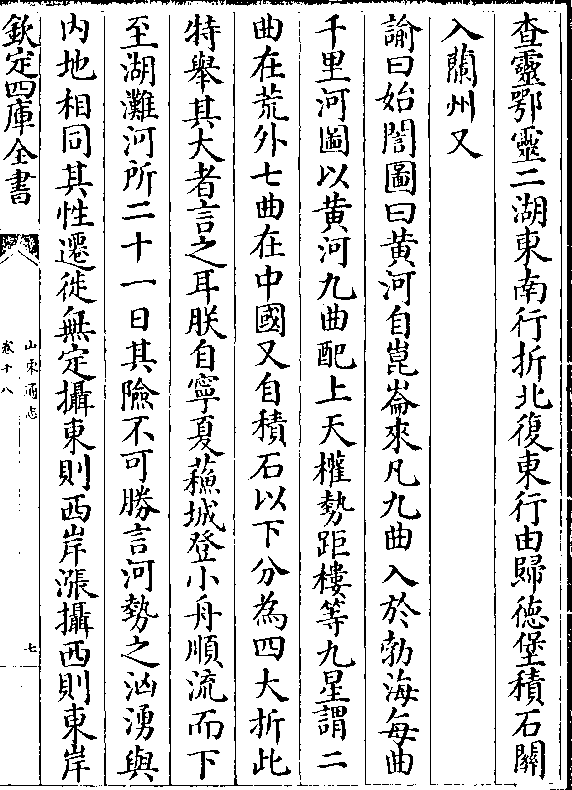 查靈鄂靈二湖東南行折北復東行由歸德堡積石關
入蘭州又
諭曰始闇圖曰黃河自崑崙來凡九曲入於勃海每曲
千里河圖以黃河九曲配上天權勢距樓等九星謂二
曲在荒外七曲在中國又自積石以下分為四大折此
特舉其大者言之耳朕自寧夏蘓城登小舟順流而下
至湖灘河所二十一日其險不可勝言河勢之洶湧與
內地相同其性遷徙無定攝東則西岸漲攝西則東岸
欽定四庫全書
山東通志
卷十八
七